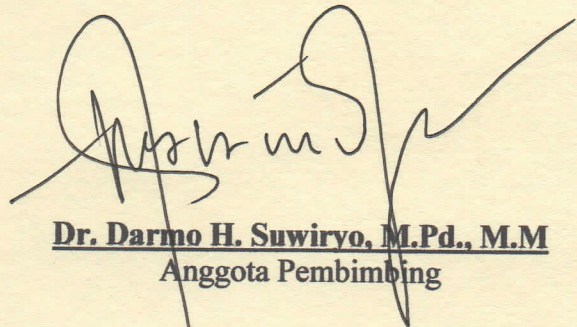 Dr. Darmo H. Suwiryo, M.Pd., M.M
Anggota Pembimbing